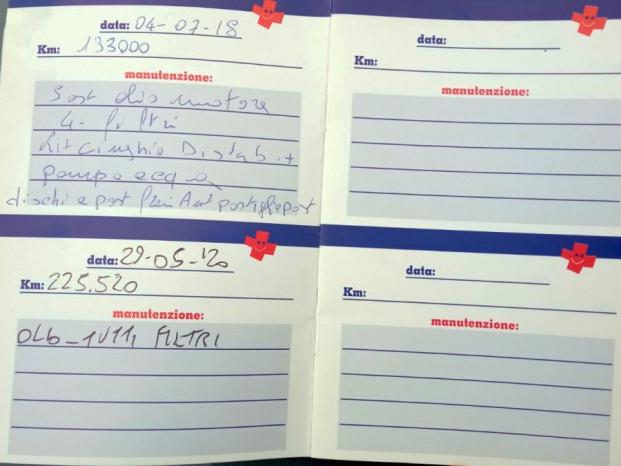 data: 04-07-18
Km: 133000
manutenzione:
Sost olio motore
4 filtri
Kit Cinghia Distrib. +
pompa acqua
dischi e past freni Ant pastiglie post
data:
Km:
manutenzione:
data: 29-05-'20
Km: 225.520
manutenzione:
OLIO - TUTTI FILTRI
data:
Km:
manutenzione: